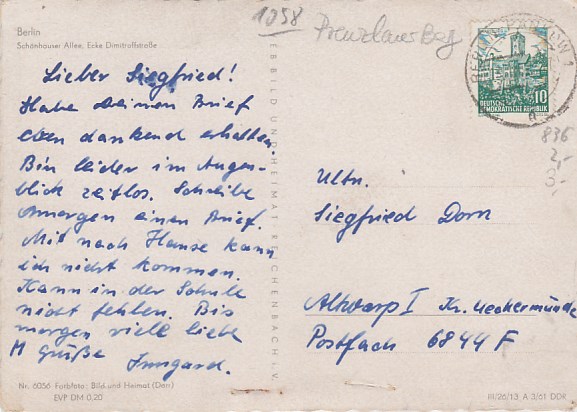 Berlin
Schönhauser Allee, Ecke Dimitroffstraße
1058
Prenzlauer Bg
Lieber Siegfried!
Habe deinen Brief
eben dankend erhalten.
Bin leider im Augen-
blick zeitlos. Schreibe
morgen einen Brief.
Mit nach Hause kann
ich nicht kommen.
Kann in der Schule
nicht fehlen. Bis
morgen viele liebe
Grüße Irmgard.
VEB BILD UND HEIMAT REICHENBACH i. V.
BERLIN-PANKOW 1
10
DEUTSCHE
DEMOKRATISCHE REPUBLIK
836
2,-
3,-
Ultn.
Siegfried Dorn
Altwarp I Kr. Ueckermünde
Postfach 6844 F
Nr. 6056 Farbfoto: Bild und Heimat (Darr)
EVP DM 0,20
III/26/13 A 3/61 DDR